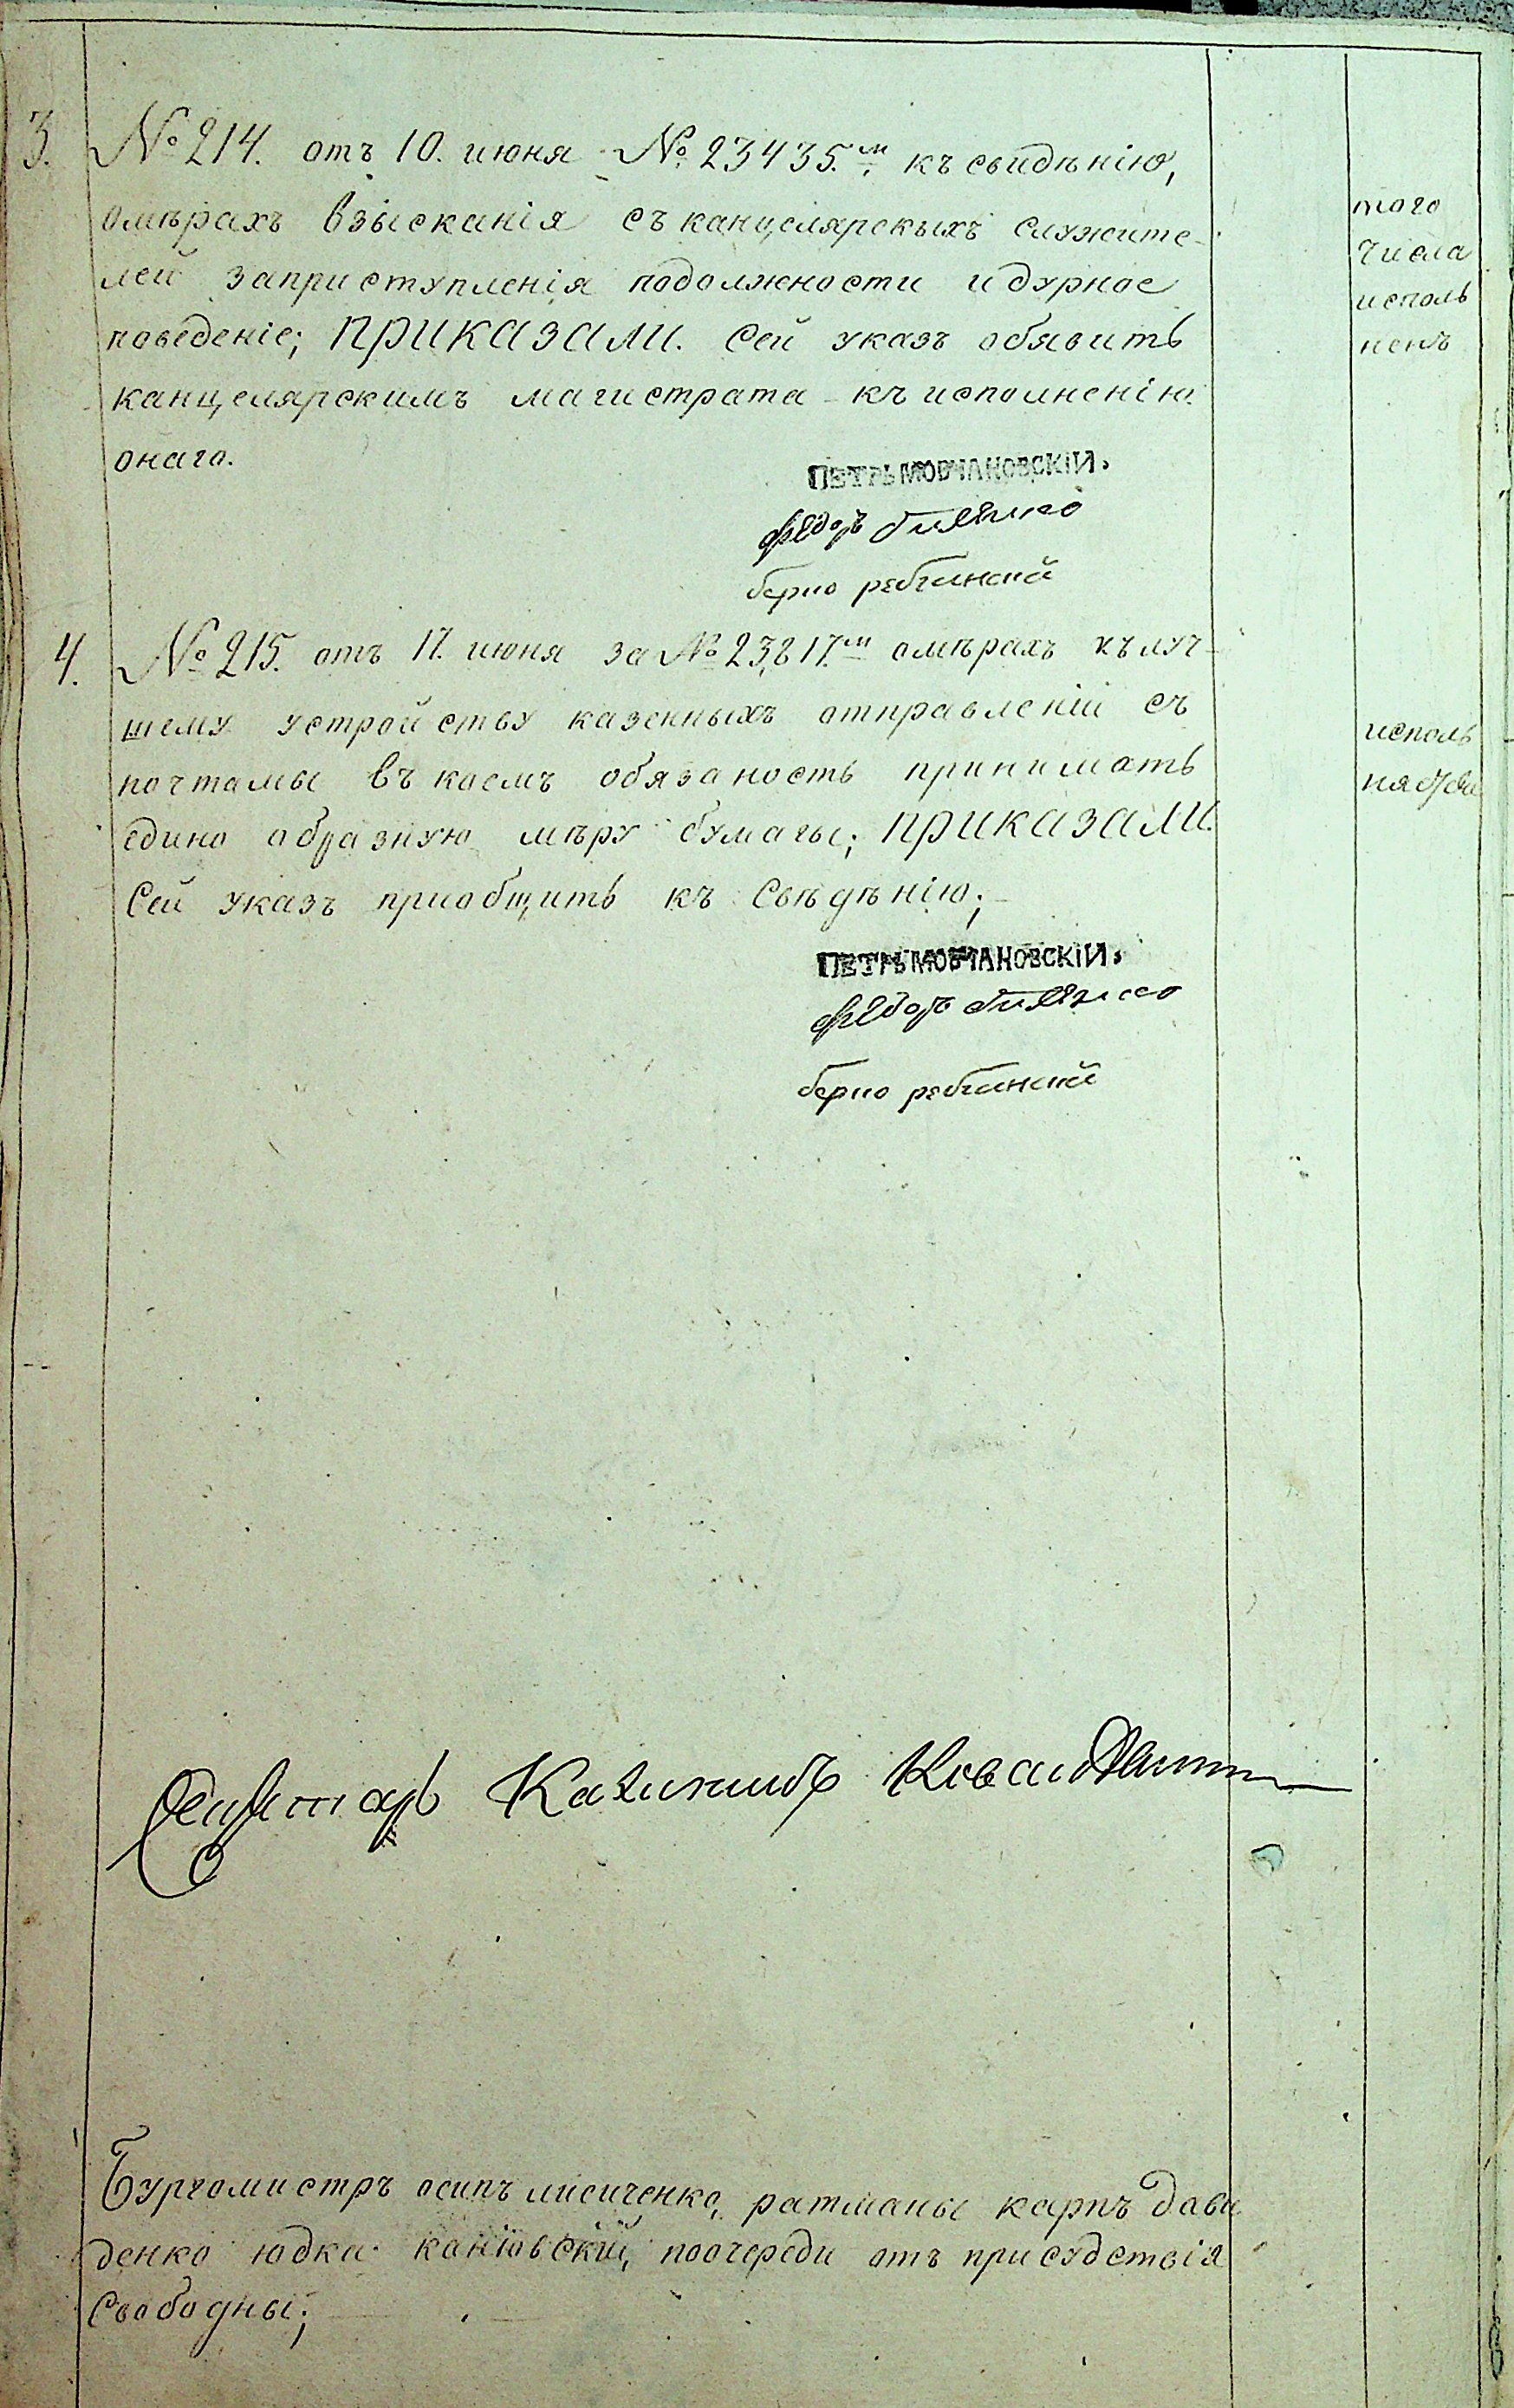 3. № 214. отъ 10. июня № 23435.м къ свидѣнію,
омѣрахъ взысканія съ канцелярскыхъ служите-
лей заприступленія подолжности и дурное
поведеніе; ПРИКАЗАЛИ. Сей указъ обявить
канцелярскимъ магистрата къ исполненію
онаго.
того
числа
исполь
ненъ
ПЕТРЪ МОВЧАНОВСКІЙ.
Федоръ
берко
4. № 215. отъ 17. июня за № 23,817.м омѣрахъ кълуч-
шему устройству казенныхъ отправленій съ
почтамы въ коемъ обязаность принимать
едино образную мѣру бумагы; ПРИКАЗАЛИ.
Сей указъ приобщить къ Свѣдѣнію;
исполь
ПЕТРЪ МОВЧАНОВСКІЙ.
Федоръ
берко
Секретарь
Бургомистръ осипъ лисиченко, ратманы карпъ дави
денко юдка канювскій, поочереди отъ присудствія
Свободны;